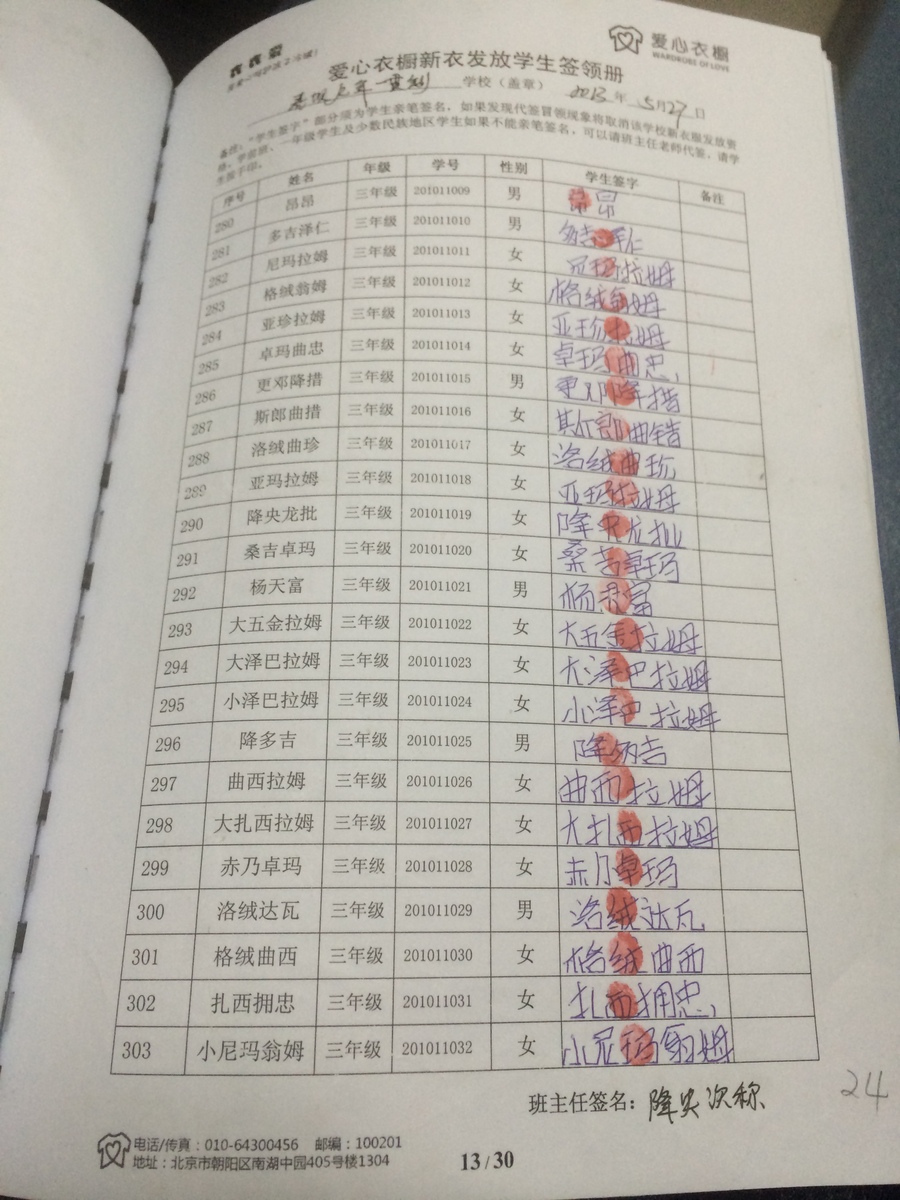 衣衣爱
爱心衣橱
WARDROBE OF LOVE
爱心衣橱新衣发放学生签领册
学校（盖章） 2013年5月27日
备注："学生签字"部分须为学生亲笔签名，如果发现代签冒领现象将取消该学校新衣服发放资
格。学前班、一年级学生及少数民族地区学生如果不能亲笔签名，可以请班主任老师代签，请学
生按手印。
序号 姓名 年级 学号 性别 学生签字 备注
280 昂昂 三年级 201011009 男 昂昂
281 多吉泽仁 三年级 201011010 男 多吉泽仁
282 尼玛拉姆 三年级 201011011 女 尼玛拉姆
283 格绒翁姆 三年级 201011012 女 格绒翁姆
284 亚珍拉姆 三年级 201011013 女 亚珍拉姆
285 卓玛曲忠 三年级 201011014 女 卓玛曲忠
286 更邓降措 三年级 201011015 男 更邓降措
287 斯郎曲措 三年级 201011016 女 斯郎曲错
288 洛绒曲珍 三年级 201011017 女 洛绒曲珍
289 亚玛拉姆 三年级 201011018 女 亚玛拉姆
290 降央龙批 三年级 201011019 女 降央龙批
291 桑吉卓玛 三年级 201011020 女 桑吉卓玛
292 杨天富 三年级 201011021 男 杨天富
293 大五金拉姆 三年级 201011022 女 大五金拉姆
294 大泽巴拉姆 三年级 201011023 女 大泽巴拉姆
295 小泽巴拉姆 三年级 201011024 女 小泽巴拉姆
296 降多吉 三年级 201011025 男 降多吉
297 曲西拉姆 三年级 201011026 女 曲西拉姆
298 大扎西拉姆 三年级 201011027 女 大扎西拉姆
299 赤乃卓玛 三年级 201011028 女 赤乃卓玛
300 洛绒达瓦 三年级 201011029 男 洛绒达瓦
301 格绒曲西 三年级 201011030 女 格绒曲西
302 扎西拥忠 三年级 201011031 女 扎西拥忠
303 小尼玛翁姆 三年级 201011032 女 小尼玛翁姆
班主任签名：降央次称
24
电话/传真：010-64300456 邮编：100201
地址：北京市朝阳区南湖中园405号楼1304
13/30